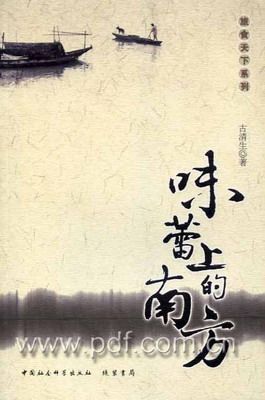 旅食天下系列
古清生◎著
味蕾上的南方
www.pdf.com.cn
中国社会科学出版社 线装书局